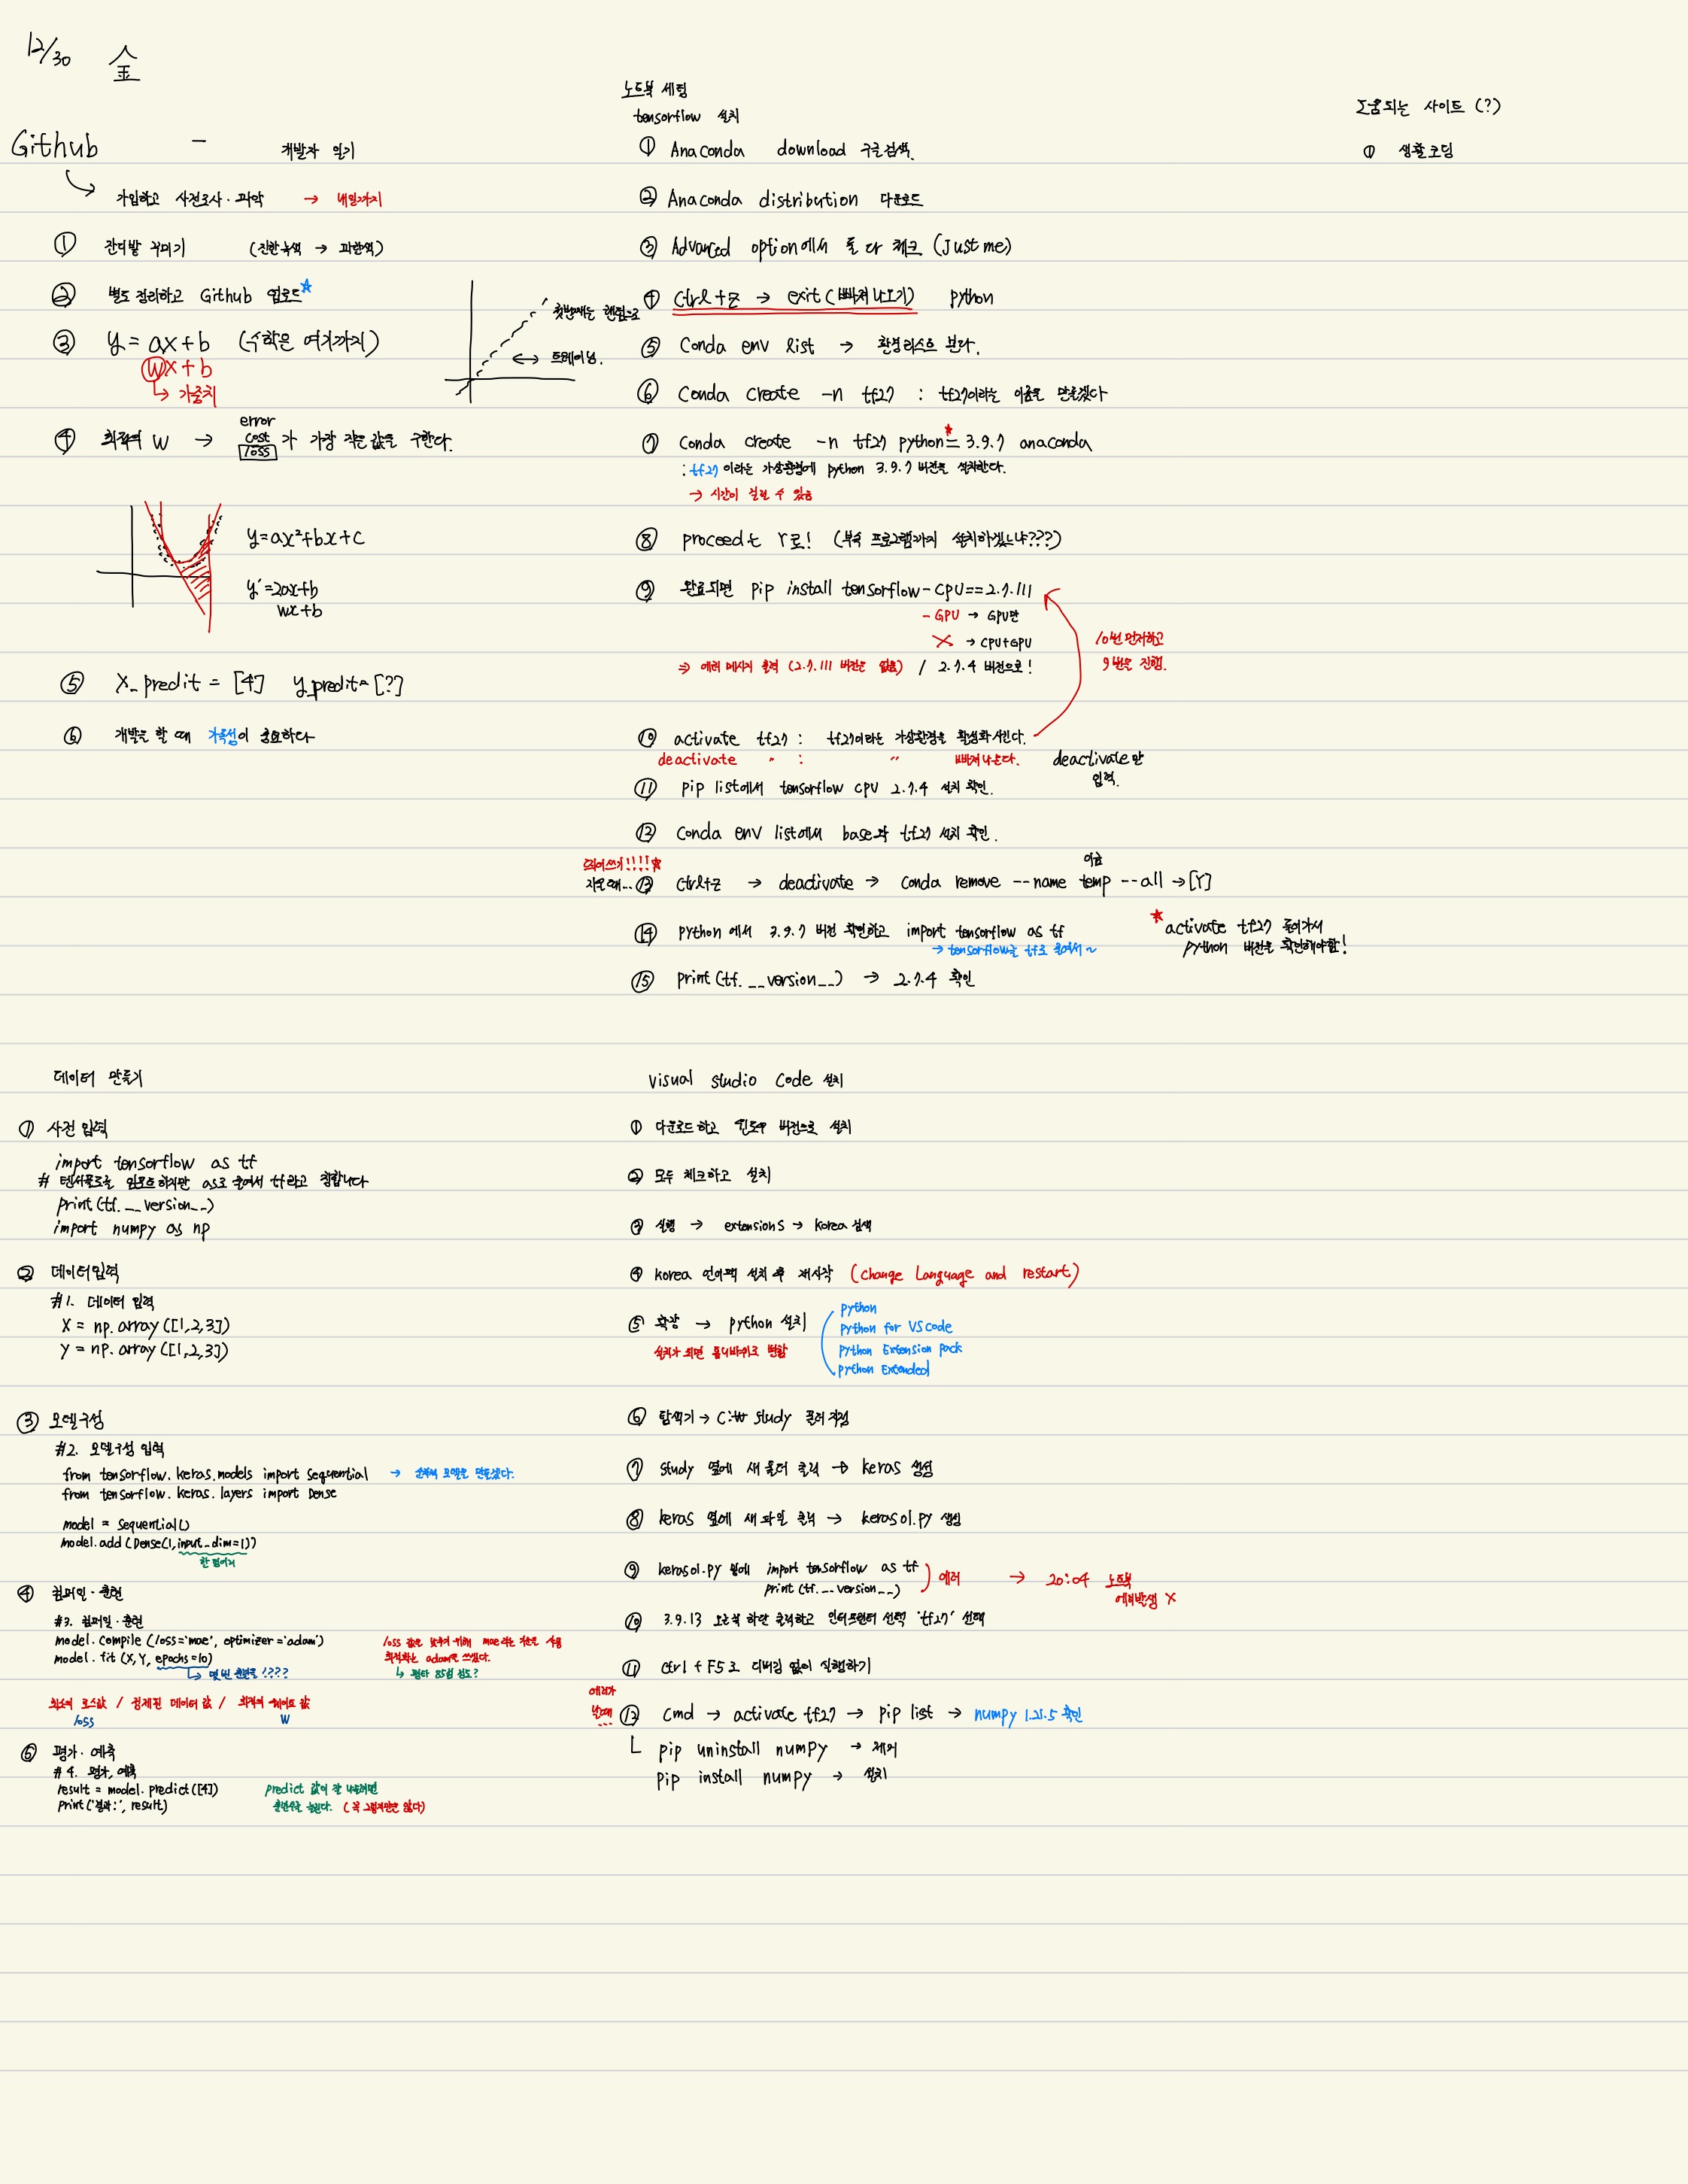 12/30 金
Github - 개발자 일기
가입하고 사전조사·파악 → 내일까지
① 잔디밭 꾸미기 (진한녹색 → 파란색)
② 별도 정리하고 Github 업로드☆
③ y = ax+b (수학은 여기까지)
Wx+b
↳ 가중치
첫번째는 랜덤으로
↔ 트레이닝.
④ 최적의 W → error
cost 가 가장 작은 값을 구한다.
loss
y=ax²+bx+c
y'=2ax+b
wx+b
⑤ X_predit = [4] y_predit=[?]
⑥ 개발을 할 때 가독성이 중요하다
노트북 세팅
tensorflow 설치
① Anaconda download 구글검색.
② Anaconda distribution 다운로드
③ Advanced option에서 둘 다 체크 (Just me)
④ Ctrl+z → exit(빠져나오기) python
⑤ Conda env list → 환경리스트 본다.
⑥ Conda create -n tf27 : tf27이라는 이름을 만들겠다
⑦ Conda create -n tf27 python=3.9.7 anaconda
: tf27 이라는 가상환경에 python 3.9.7 버전을 설치한다.
→ 시간이 걸릴 수 있음
⑧ proceed는 Y로! (부속 프로그램까지 설치하겠느냐???)
⑨ 완료되면 pip install tensorflow-cpu==2.7.111
-GPU → GPU만
X → CPU+GPU
⇒ 에러 메시지 출력 (2.7.111 버전은 없음) / 2.7.4 버전으로!
10번 먼저하고
9번을 진행.
⑩ activate tf27 : tf27이라는 가상환경을 활성화시킨다.
deactivate 〃 : 〃 빠져나온다. deactivate 만
입력.
⑪ pip list에서 tensorflow cpu 2.7.4 설치 확인.
⑫ Conda env list에서 base와 tf27 설치 확인.
띄어쓰기!!!!☆
이름
지울때... ⑬ Ctrl+z → deactivate → Conda remove --name temp --all → [Y]
⑭ python 에서 3.9.7 버전 확인하고 import tensorflow as tf
→ tensorflow를 tf로 줄여서~
★ activate tf27 들어가서
python 버전을 확인해야함!
⑮ print(tf.__version__) → 2.7.4 확인
도움되는 사이트 (?)
① 생활코딩
데이터 만들기
① 사전 입력
import tensorflow as tf
# 텐서플로를 임포트하지만 as로 줄여서 tf라고 칭합니다
print(tf.__version__)
import numpy as np
② 데이터입력
#1. 데이터 입력
X = np.array([1,2,3])
Y = np.array([1,2,3])
③ 모델구성
#2. 모델구성 입력
from tensorflow.keras.models import Sequential → 순차적 모델을 만들겠다.
from tensorflow.keras.layers import Dense
model = Sequential()
model.add(Dense(1,input_dim=1))
한 덩어리
④ 컴파일·훈련
#3. 컴파일·훈련
model.compile(loss='mae', optimizer='adam')
model.fit(X,Y,epochs=10)
↳ 몇 번 훈련을!???
loss 값을 낮추기 위해 mae라는 것을 사용
최적화는 adam을 쓰겠다.
↳ 평타 85점 정도?
최소의 로스값 / 정제된 데이터 값 / 최적의 웨이트 값
loss W
⑤ 평가·예측
#4. 평가, 예측
result = model.predict([4])
print('결과:', result)
predict 값이 잘 나오려면
훈련수를 늘린다. (꼭 그렇지만은 않다)
visual studio code 설치
① 다운로드하고 윈도우 버전으로 설치
② 모두 체크하고 설치
③ 실행 → extensions → korea 검색
④ korea 언어팩 설치 후 재시작 (Change Language and restart)
⑤ 확장 → python 설치
설치가 되면 톱니바퀴로 변함
python
python for VS code
python Extension pack
python Extended
⑥ 탐색기 → C:₩ study 폴더 지정
⑦ study 옆에 새 폴더 클릭 → keras 생성
⑧ keras 옆에 새 파일 클릭 → keras01.py 생성
⑨ keras01.py 안에 import tensorflow as tf
print(tf.__version__)
에러 → 20:04 노트북
에러발생 X
⑩ 3.9.13 오른쪽 하단 클릭하고 인터프린터 선택 'tf27' 선택
⑪ ctrl + F5로 디버깅 없이 실행하기
에러가
날때
...
⑫ cmd → activate tf27 → pip list → numpy 1.21.5 확인
ㄴ pip uninstall numpy → 제거
pip install numpy → 설치